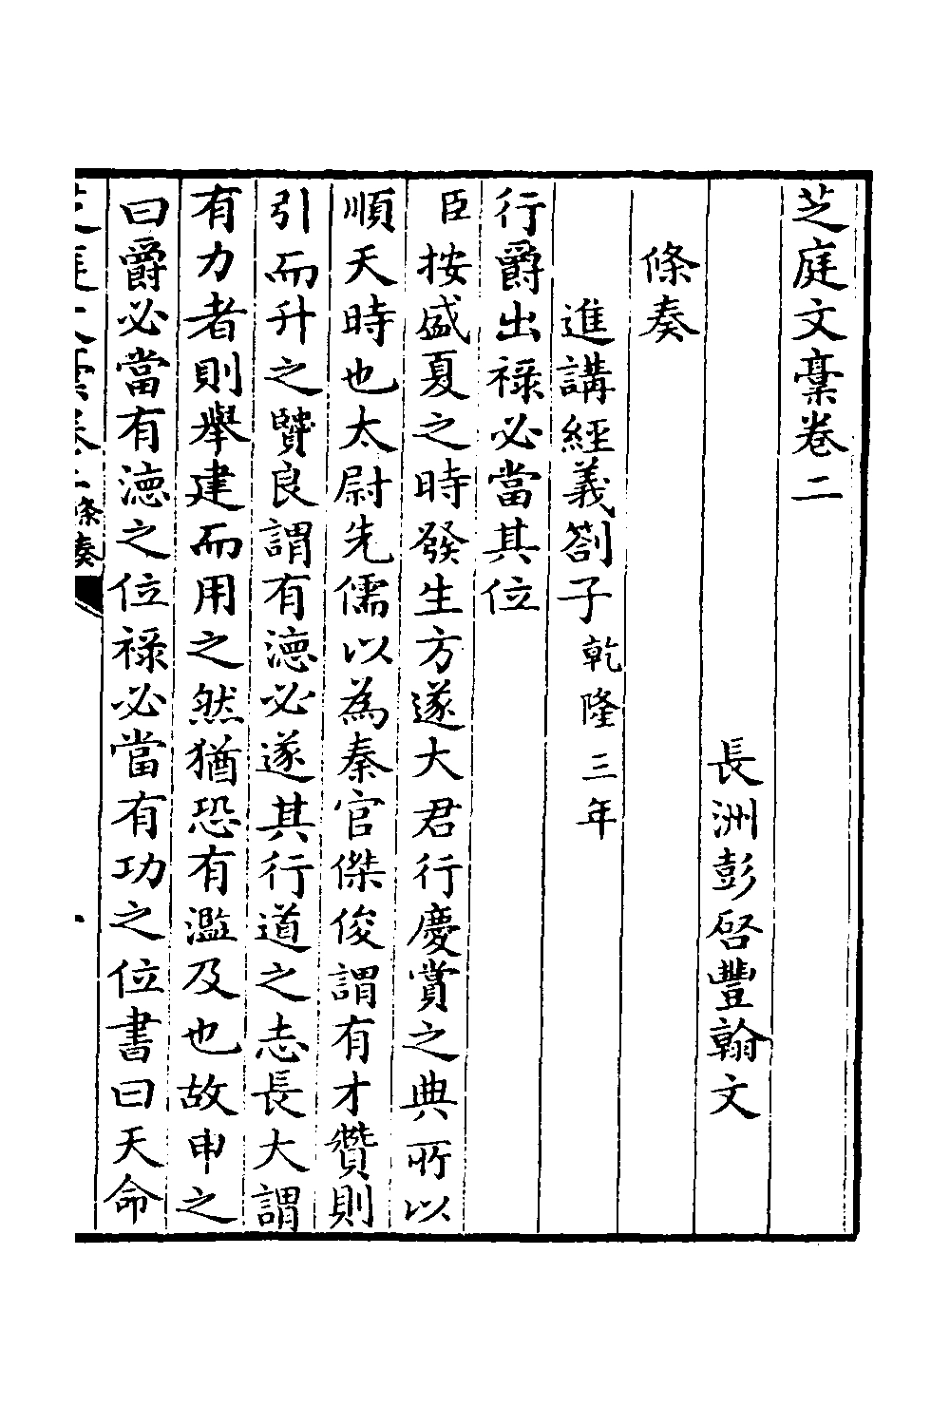 芝庭文稾卷二
長洲彭啓豐翰文
條奏
進講經義劄子乾隆三年
行爵出祿必當其位
臣按盛夏之時發生方遂大君行慶賞之典所以
順天時也太尉先儒以為秦官傑俊謂有才贊則
引而升之贒良謂有德必遂其行道之志長大謂
有力者則舉建而用之然猶恐有濫及也故申之
曰爵必當有德之位祿必當有功之位書曰天命
芝庭文稾卷二 條奏